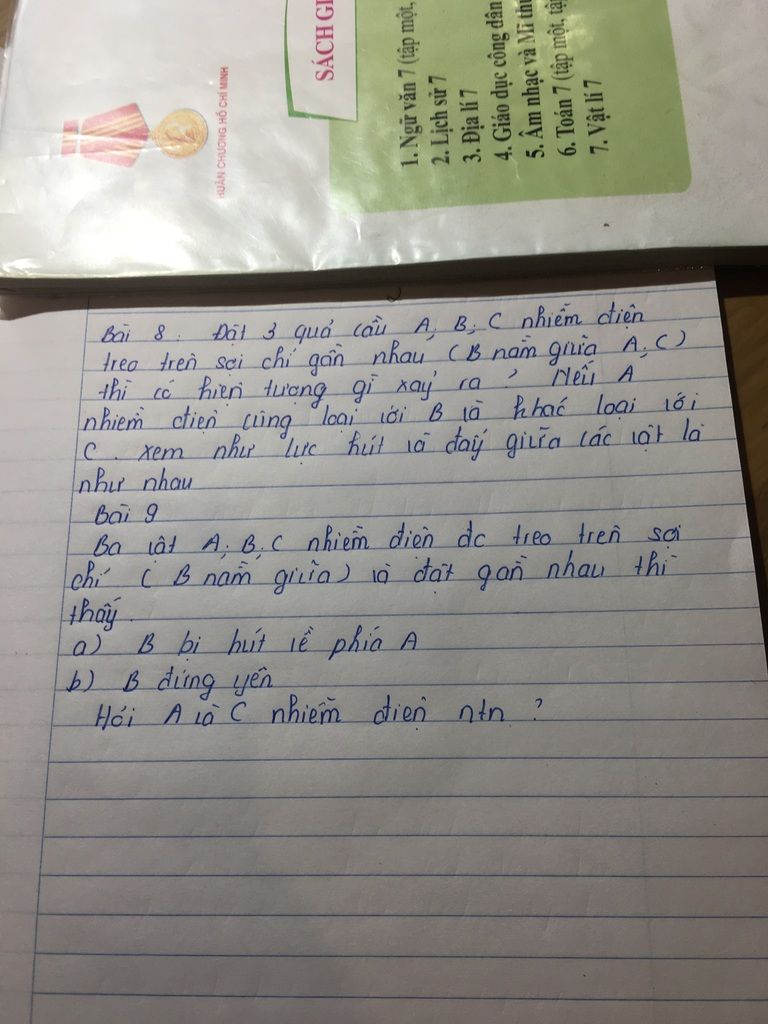 HUÂN CHƯƠNG HỒ CHÍ MINH
SÁCH GI
1. Ngữ văn 7 (tập một,
2. Lịch sử 7
3. Địa lí 7
4. Giáo dục công dân
5. Âm nhạc và Mĩ thu
6. Toán 7 (tập một, tậ
7. Vật lí 7
Bài 8: Đặt 3 quả cầu A, B, C nhiễm điện
treo trên sợi chỉ gần nhau (B nằm giữa A, C)
thì có hiện tượng gì xảy ra? Nếu A
nhiễm điện cùng loại với B và khác loại với
C. xem như lực hút và đẩy giữa các vật là
như nhau
Bài 9
Ba vật A, B, C nhiễm điện đc treo trên sợi
chỉ (B nằm giữa) và đặt gần nhau thì
thấy.
a) B bị hút về phía A
b) B đứng yên
Hỏi A và C nhiễm điện ntn?